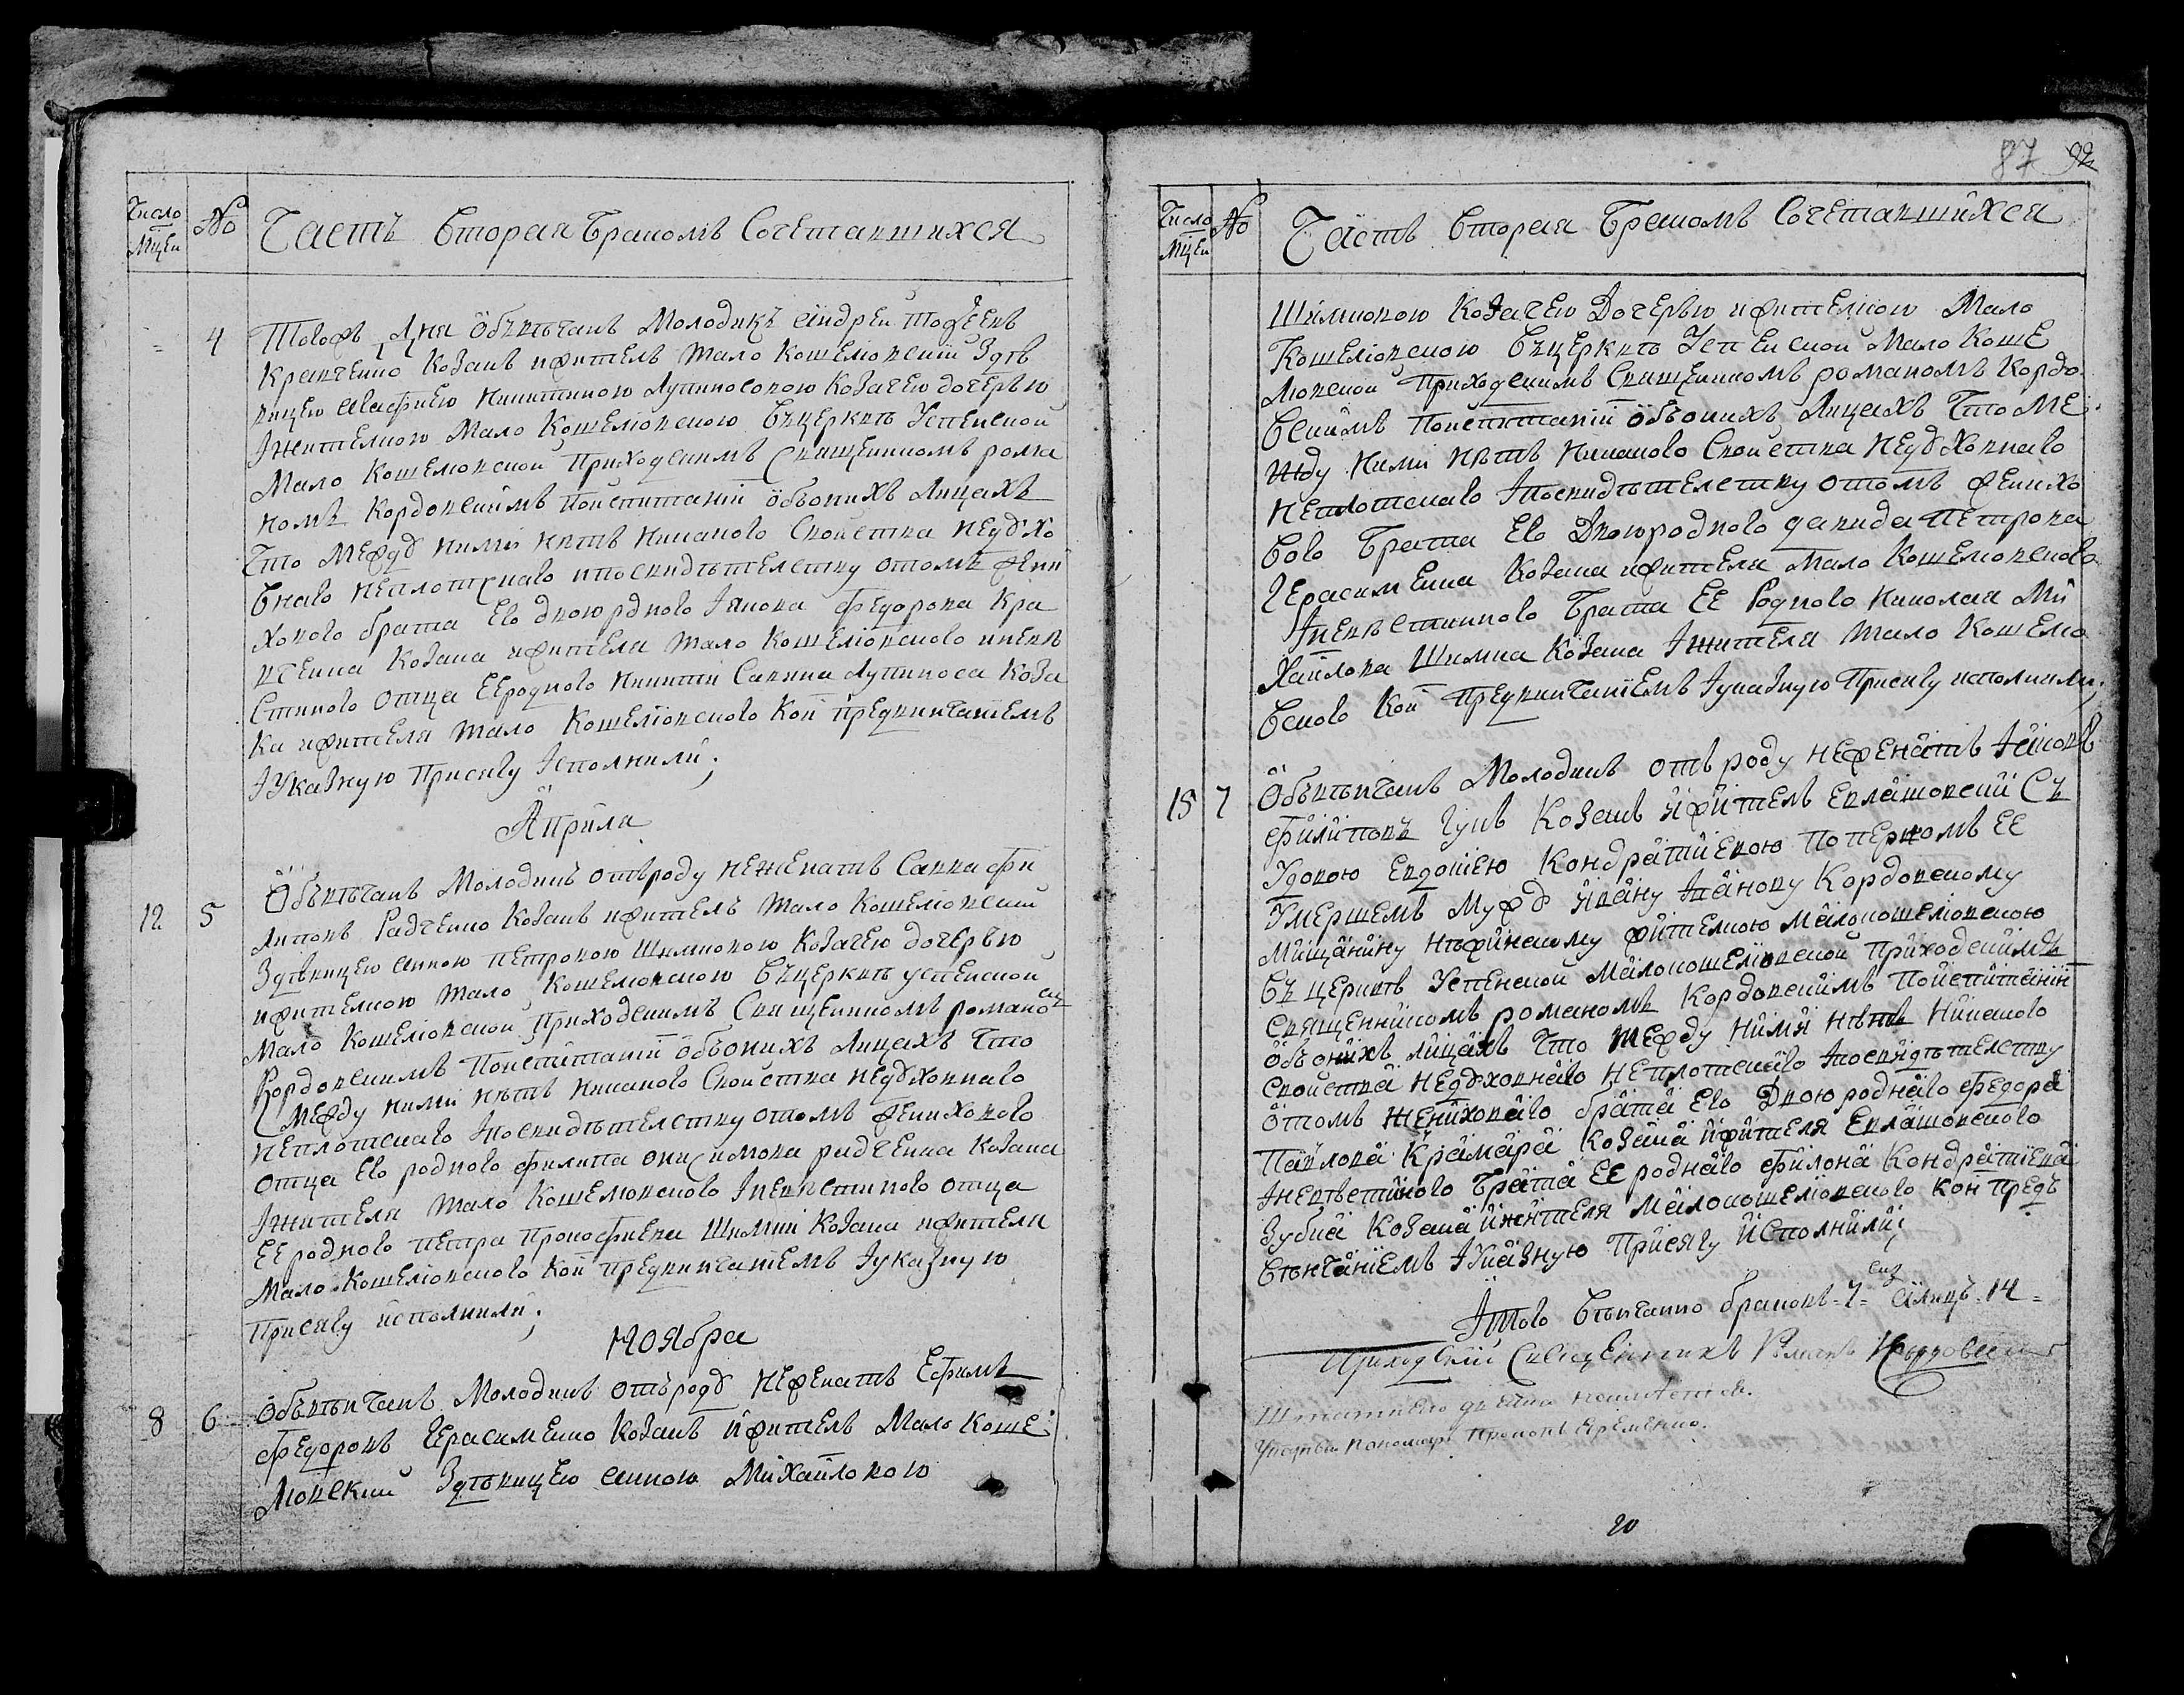 Число
Мцеи
№
Часть Вторая Браколъ Сочетавшихся
4
Тогожъ Дня Обвѣнчанъ Молодикъ Андреи Тофеевъ
Кравченко Козакъ ижитель Мало Кошелювскій Здѣ
вицею Агафиею Никитиною Лупиносовою Козачею дочерью
Ижителкою Мало Кошелювскою Въцерквѣ Успенской
Мало Кошелювской Приходскимъ Священникомъ рома
номъ Кордовскимъ Поиспитаній объоныхъ Лицахъ
Что Между ними нѣтъ никакого Своиства недухо
внаго неплотскаго ипосвидѣтелству отомъ жени
хового брата Его двоюрдного Ивкова Федорова Кра
вченка Козака ижителя Мало Кошелювского иневѣ
стиного Отца Ееродного Никити Савина Лупиноса Коза
ка ижителя Мало Кошелювского Кои предвинчаніемъ
Иуказную Присягу Исполнили;
Априля
12
5
Обвѣнчанъ Молодикъ отъроду неженатъ Савка Фи
липовъ Радченко Козакъ ижитель Мало Кошелювскій
Здѣвицею анною петровою Шимковою Козачею дочерью
ижителкою Мало Кошелювскою Въцерквѣ успенской
Мало Кошелювской Приходскимъ Священникомъ романомъ
Кордовскимъ Поиспитаній объонихъ Лицахъ Что
Между ними нѣтъ никакого Своиства недуховнаго
неплотскаго Ипосвидѣтелству отомъ женихового
отца Его родного Филипа онисимова радченка Козака
Ижителя Мало Кошелювского Иневѣстиного отца
Ее родного петра Прокофиева Шимки Козака ижителя
Мало Кошелювского Кои предвинчаніемъ Иуказную
Присягу исполнили;
Ноября
8
6
Обвѣнчанъ Молодикъ отъроду неженатъ Ефимъ
Федоровъ Герасименко Козакъ ижитель Мало Коше
Лювский Здѣвицею анною Михайловою
87 92
Число
Мцеи
№
Часть Вторая Браколъ Сочетавшихся
Шимковою Козачею Дочерью ижителкою Мало
Кошелювскою Въцерквѣ Успенской Мало Коше
Лювской Приходскимъ Священникомъ романомъ Кордо
Вскимъ Поиспитаній объонихъ Лицахъ Что Ме
жду ними нѣтъ Никакого Своиства Недуховнаго
Неплотскаго Ипосвидѣтелству отомъ жених
вого Брата Его Двоюродного давида Петрова
Герасименка Козака ижителя Мало Кошелювского
Иневѣстинного Брата Ее Родного Николая Ми
хайлова Шимка Козака Ижителя Мало Кошелю
Вского Кои Предвинчаніемъ Иуказную Присягу исполнили;
15
7
Обвѣнчанъ Молодикъ отъ роду неженатъ Иаковъ
Филиповъ Гукъ Козакъ ижитель Евлашовскій Съ
Удовою Евдокіею Кондратиевою поперьвомъ Ее
Умершемъ Мужѣ Ивану Иванову Кордовскому
Мищанину нѣжинскому жителкою Малокошелювскою
Въ церквѣ Успенской Малокошелювской Приходскимъ
Священникомъ романомъ Кордовскимъ Поиспитаніи
Объонихъ лицахъ Что Между ними нѣтъ никакого
Своиства недуховнаго неплотскаго Ипосвидѣтелству
Отомъ женихового брата его Двоюродного Федора
Павлова Крамара Козака ижителя Евлашовского
Иневѣстиного Брата Ее родного Филона Кондратиева
Зубка Козака ижителя Малокошелювского Кои предъ
Вѣнчаніемъ Иуказную Присягу Исполнили;
Итого Вѣнчанно браковъ 7 Алицъ 14
Приходскій Священникъ Романъ Кордовский
Пономарь Яременко
20